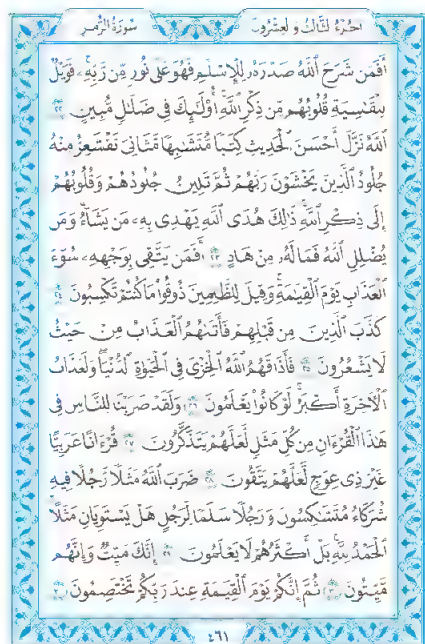 الجزء الثالث والعشرون سورة الزمر
أَفَمَن شَرَحَ ٱللَّهُ صَدْرَهُۥ لِلْإِسْلَٰمِ فَهُوَ عَلَىٰ نُورٍ مِّن رَّبِّهِۦ ۚ فَوَيْلٌ
لِّلْقَٰسِيَةِ قُلُوبُهُم مِّن ذِكْرِ ٱللَّهِ ۚ أُو۟لَٰٓئِكَ فِى ضَلَٰلٍ مُّبِينٍ ٢٢
ٱللَّهُ نَزَّلَ أَحْسَنَ ٱلْحَدِيثِ كِتَٰبًا مُّتَشَٰبِهًا مَّثَانِىَ تَقْشَعِرُّ مِنْهُ
جُلُودُ ٱلَّذِينَ يَخْشَوْنَ رَبَّهُمْ ثُمَّ تَلِينُ جُلُودُهُمْ وَقُلُوبُهُمْ
إِلَىٰ ذِكْرِ ٱللَّهِ ۚ ذَٰلِكَ هُدَى ٱللَّهِ يَهْدِى بِهِۦ مَن يَشَآءُ ۚ وَمَن
يُضْلِلِ ٱللَّهُ فَمَا لَهُۥ مِنْ هَادٍ ٢٣ أَفَمَن يَتَّقِى بِوَجْهِهِۦ سُوٓءَ
ٱلْعَذَابِ يَوْمَ ٱلْقِيَٰمَةِ ۚ وَقِيلَ لِلظَّٰلِمِينَ ذُوقُوا۟ مَا كُنتُمْ تَكْسِبُونَ ٢٤
كَذَّبَ ٱلَّذِينَ مِن قَبْلِهِمْ فَأَتَىٰهُمُ ٱلْعَذَابُ مِنْ حَيْثُ
لَا يَشْعُرُونَ ٢٥ فَأَذَاقَهُمُ ٱللَّهُ ٱلْخِزْىَ فِى ٱلْحَيَوٰةِ ٱلدُّنْيَا ۖ وَلَعَذَابُ
ٱلْءَاخِرَةِ أَكْبَرُ ۚ لَوْ كَانُوا۟ يَعْلَمُونَ ٢٦ وَلَقَدْ ضَرَبْنَا لِلنَّاسِ فِى
هَٰذَا ٱلْقُرْءَانِ مِن كُلِّ مَثَلٍ لَّعَلَّهُمْ يَتَذَكَّرُونَ ٢٧ قُرْءَانًا عَرَبِيًّا
غَيْرَ ذِى عِوَجٍ لَّعَلَّهُمْ يَتَّقُونَ ٢٨ ضَرَبَ ٱللَّهُ مَثَلًا رَّجُلًا فِيهِ
شُرَكَآءُ مُتَشَٰكِسُونَ وَرَجُلًا سَلَمًا لِّرَجُلٍ هَلْ يَسْتَوِيَانِ مَثَلًا ۚ
ٱلْحَمْدُ لِلَّهِ ۚ بَلْ أَكْثَرُهُمْ لَا يَعْلَمُونَ ٢٩ إِنَّكَ مَيِّتٌ وَإِنَّهُم
مَّيِّتُونَ ٣٠ ثُمَّ إِنَّكُمْ يَوْمَ ٱلْقِيَٰمَةِ عِندَ رَبِّكُمْ تَخْتَصِمُونَ ٣١
٤٦١